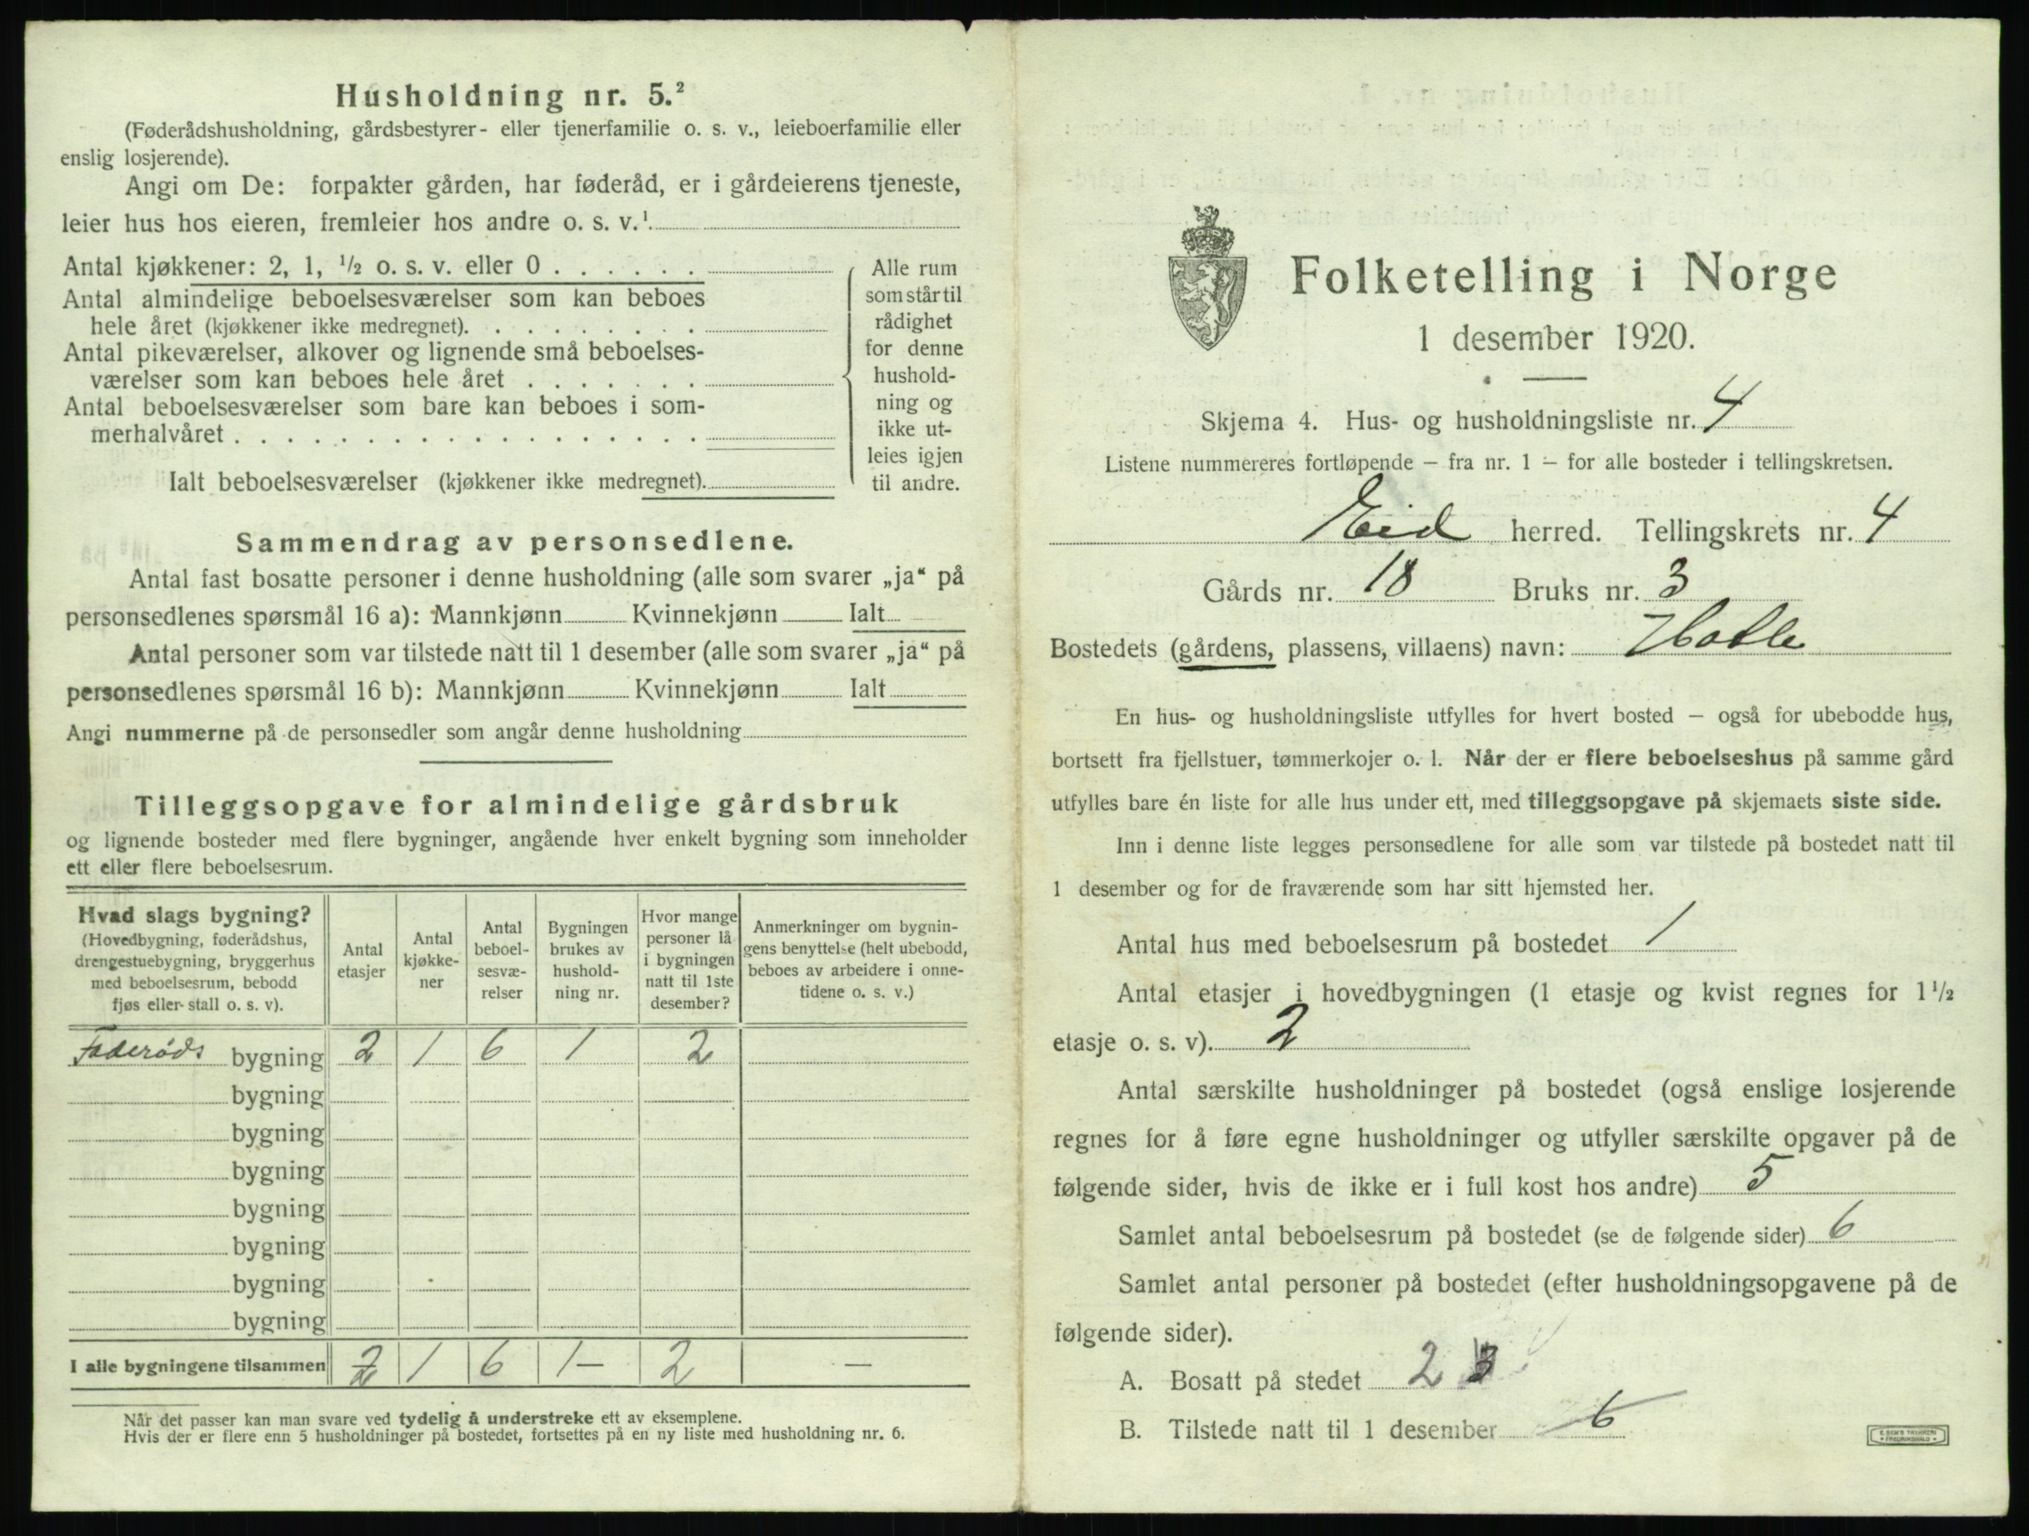 Husholdning nr. 5.²
(Føderådshusholdning, gårdsbestyrer- eller tjenerfamilie o. s. v., leieboerfamilie eller
enslig losjerende).
Angi om De: forpakter gården, har føderåd, er i gårdeierens tjeneste,
leier hus hos eieren, fremleier hos andre o. s. v.¹
Antal kjøkkener: 2, 1, ½ o. s. v. eller 0
Antal almindelige beboelsesværelser som kan beboes
hele året (kjøkkener ikke medregnet).
Antal pikeværelser, alkover og lignende små beboelses-
værelser som kan beboes hele året
Antal beboelsesværelser som bare kan beboes i som-
merhalvåret
Ialt beboelsesværelser (kjøkkener ikke medregnet).
Alle rum
som står til
rådighet
for denne
hushold-
ning og
ikke ut-
leies igjen
til andre.
Sammendrag av personsedlene.
Antal fast bosatte personer i denne husholdning (alle som svarer „ja“ på
personsedlenes spørsmål 16 a): Mannkjønn Kvinnekjønn Ialt
Antal personer som var tilstede natt til 1 desember (alle som svarer „ja“ på
personsedlenes spørsmål 16 b): Mannkjønn Kvinnekjønn Ialt
Angi nummerne på de personsedler som angår denne husholdning
Tilleggsopgave for almindelige gårdsbruk
og lignende bosteder med flere bygninger, angående hver enkelt bygning som inneholder
ett eller flere beboelsesrum.
Hvad slags bygning?
(Hovedbygning, føderådshus,
drengestuebygning, bryggerhus
med beboelsesrum, bebodd
fjøs eller stall o. s. v).
Antal
etasjer
Antal
kjøkke-
ner
Antal
beboel-
sesvæ-
relser
Bygningen
brukes av
hushold-
ning nr.
Hvor mange
personer lå
i bygningen
natt til 1ste
desember?
Anmerkninger om bygnin-
gens benyttelse (helt ubebodd,
beboes av arbeidere i onne-
tidene o. s. v.)
Føderåds bygning 2 1 6 1 2
bygning
bygning
bygning
bygning
bygning
bygning
bygning
I alle bygningene tilsammen 2 1 6 1 – 2 —
Når det passer kan man svare ved tydelig å understreke ett av eksemplene.
Hvis der er flere enn 5 husholdninger på bostedet, fortsettes på en ny liste med husholdning nr. 6.
Folketelling i Norge
1 desember 1920.
Skjema 4. Hus- og husholdningsliste nr. 4
Listene nummereres fortløpende – fra nr. 1 – for alle bosteder i tellingskretsen.
Eid herred. Tellingskrets nr. 4
Gårds nr. 18 Bruks nr. 3
Bostedets (gårdens, plassens, villaens) navn:
En hus- og husholdningsliste utfylles for hvert bosted – også for ubebodde hus,
bortsett fra fjellstuer, tømmerkojer o. l. Når der er flere beboelseshus på samme gård
utfylles bare én liste for alle hus under ett, med tilleggsopgave på skjemaets siste side.
Inn i denne liste legges personsedlene for alle som var tilstede på bostedet natt til
1 desember og for de fraværende som har sitt hjemsted her.
Antal hus med beboelsesrum på bostedet 1
Antal etasjer i hovedbygningen (1 etasje og kvist regnes for 1½
etasje o. s. v). 2
Antal særskilte husholdninger på bostedet (også enslige losjerende
regnes for å føre egne husholdninger og utfyller særskilte opgaver på de
følgende sider, hvis de ikke er i full kost hos andre) 5
Samlet antal beboelsesrum på bostedet (se de følgende sider) 6
Samlet antal personer på bostedet (efter husholdningsopgavene på de
følgende sider).
A. Bosatt på stedet 2 3
B. Tilstede natt til 1 desember 6